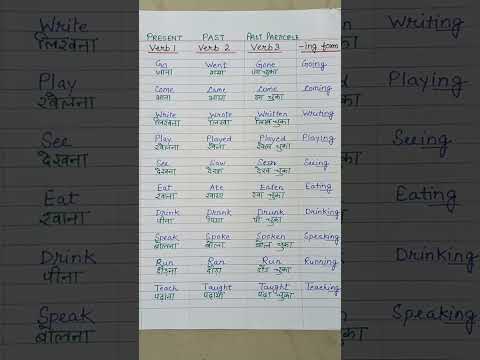 PRESENT PAST PAST PARTICIPLE
Verb 1 Verb 2 Verb 3 -ing form
Go Went Gone Going
जाना गया जा चुका
Come Came Come Coming
आना आया आ चुका
Write Wrote Written Writing
लिखना लिखा लिख चुका
Play Played Played Playing
खेलना खेला खेल चुका
See Saw Seen Seeing
देखना देखा देख चुका
Eat Ate Eaten Eating
खाना खाया खा चुका
Drink Drank Drunk Drinking
पीना पिया पी चुका
Speak Spoke Spoken Speaking
बोलना बोला बोल चुका
Run Ran Run Running
दौड़ना दौड़ा दौड़ चुका
Teach Taught Taught Teaching
पढ़ाना पढ़ाया पढ़ा चुका
Write
लिखना
Play
खेलना
See
देखना
Eat
खाना
Drink
पीना
Speak
बोलना
Writing
Playing
Seeing
Eating
Drinking
Speaking